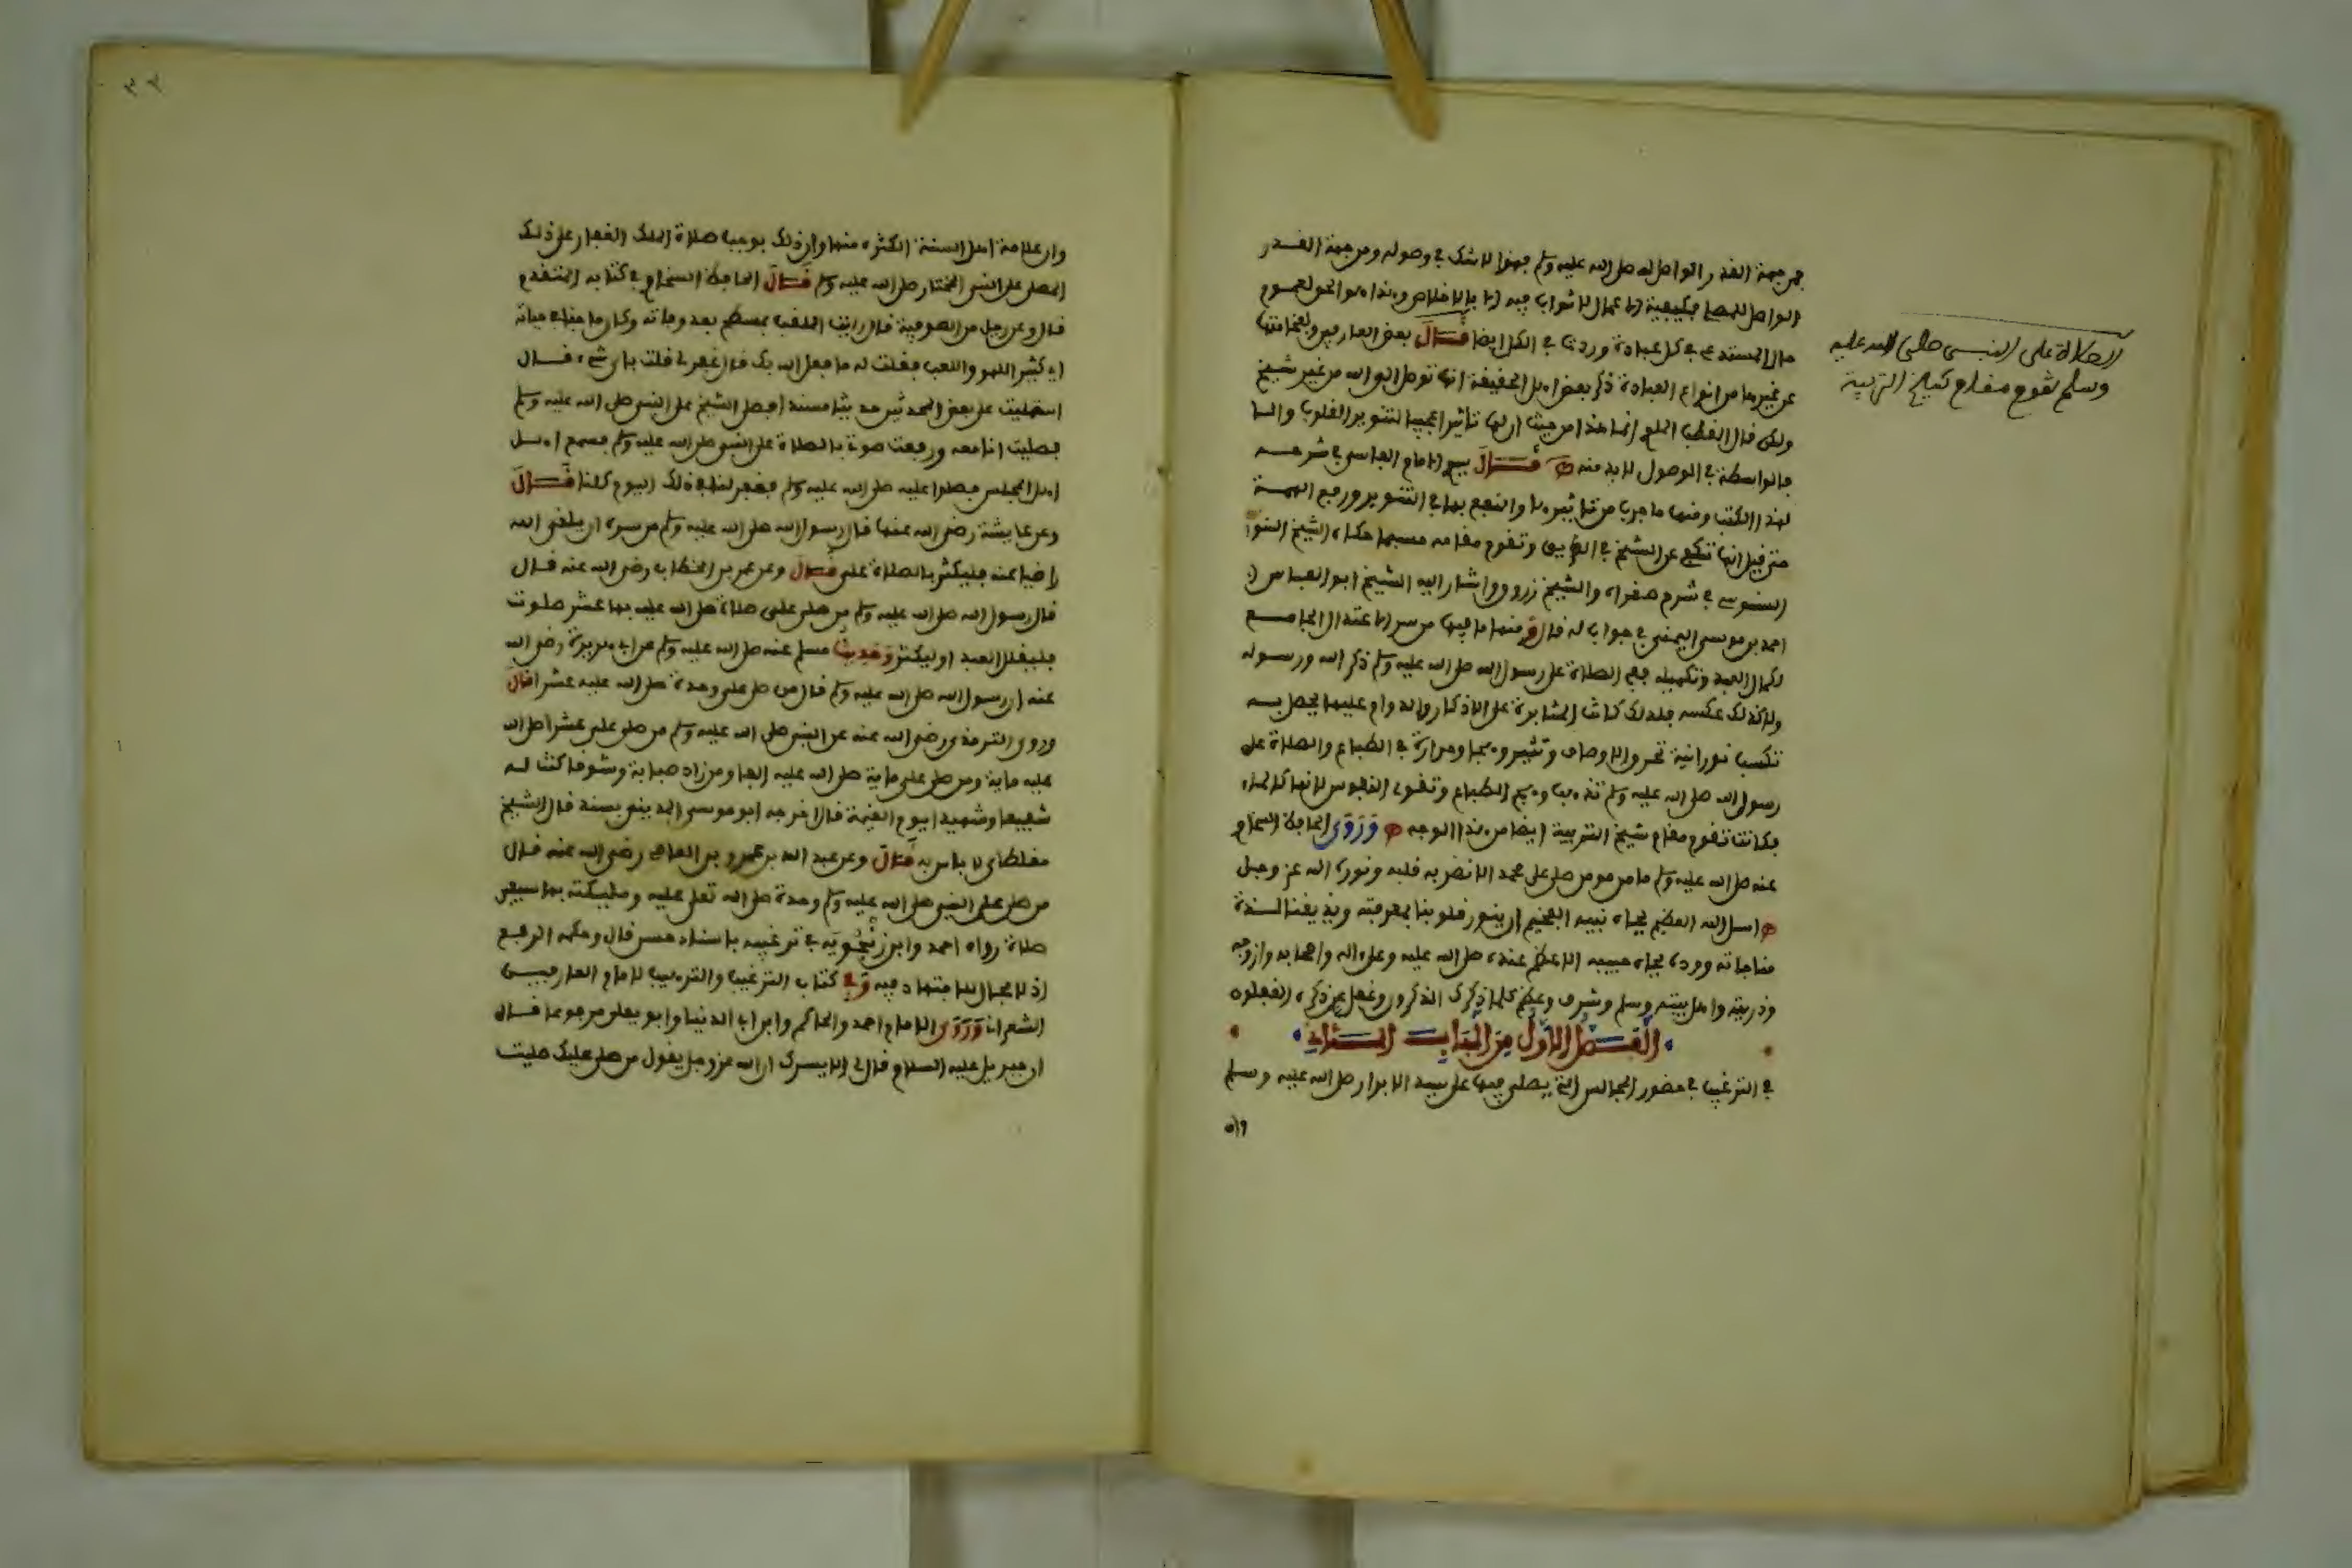 فمن جهة القدر الواصل له صلى الله عليه وسلم فهذا لا شك في وصوله ومن جهة القدر
الواصل للمصلي فكبقية الاعمال لا ثواب فيه الا بالاخلاص وهذا هو الحق لعموم
في كل عبادة في الكل ايضا قال بعض العارفين
عن غيرها من انواع العبادة ذكر بعض اهل الحقيقة انها توصل الى الله من غير شيخ
ولكن قال القطب الملوي انما هذا من حيث ان لها تاثيرا عجيبا لتنوير القلوب والا
فالواسطة في الوصول لا بد منه قال الامام الفاسي في شرحه
لهذا الكتاب ومنها ما جرب من تاثيرها والنفع بها في التنوير ورفع الهمة
حتى قيل انها تكفي عن الشيخ في الطريق وتقوم مقامه حسبما حكاه الشيخ
السنوسي في شرح صغراه والشيخ زروق واشار اليه الشيخ ابو العباس
احمد بن موسى اليمني في جواب له قال ومنها ما فيها من سر الاعتدال الجامع
لكمال العبد وتكميله ففي الصلاة على رسول الله صلى الله عليه وسلم ذكر الله ورسوله
ولا كذلك عكسه فلذلك كانت المثابرة على الاذكار والدوام عليها يحصل به
تكسب نورانية تحرق الاوصاف وتثير وهجا وحرارة في الطباع والصلاة على
رسول الله صلى الله عليه وسلم تذهب وهج الطباع وتقوي النفوس لانها كالماء
فكانت تقوم مقام شيخ التربية ايضا من هذا الوجه وروى الحافظ السخاوي
عنه صلى الله عليه وسلم ما من مومن صلى على محمد الا نضر به قلبه ونوره الله عز وجل
اسل الله العظيم بجاه نبيه الفخيم ان ينور قلوبنا بمعرفته ويذيقنا لذة
مناجاته ووده بجاه حبيبه الاعظم عنده صلى الله عليه وعلى اله واصحابه وازوجه
وذريته واهل بيته وسلم وشرف وعظم كلما ذكرك الذكرون وغفل عن ذكره الغفلون
القسم الاول من الباب الثاني
في الترغيب في حضور المجالس التي يصلى فيها على سيد الابرار صلى الله عليه وسلم
وان
الصلاة على النبي صلى الله عليه
وسلم تقوم مقام شيخ التربية
٣٢
وان علامة اهل السنة الكثرة منها وان ذلك يوجب صلاة الملك الغفار على ذلك
المصلي على النبي المختار صلى الله عليه وسلم قال الحافظ السخاوي في كتابه المتقدم
قال وعن رجل من الصوفية قال رايت الملقب بمسطح بعد وفاته وكان ماجنا في حياته
اي كثير اللهو واللعب فقلت له ما فعل الله بك قال غفر لي قلت باي شيء قال
استمليت على بعض المحدثين حديثا مسندا فصلى الشيخ على النبي صلى الله عليه وسلم
فصليت انا معه ورفعت صوتي بالصلاة على النبي صلى الله عليه وسلم فسمع اهل
اهل المجلس فصلوا عليه صلى الله عليه وسلم فغفر لنا في ذلك اليوم كلنا قال
وعن عايشة رضي الله عنها قال رسول الله صلى الله عليه وسلم من سره ان يلقى الله
راضيا عنه فليكثر بالصلاة علي قال وعن عمر بن الخطاب رضي الله عنه قال
قال رسول الله صلى الله عليه وسلم من صلى علي صلاة صلى الله عليه بها عشر صلوت
فليقلل العبد او ليكثر وحديث مسلم عنه صلى الله عليه وسلم عن ابي هريرة رضي الله
عنه ان رسول الله صلى الله عليه وسلم قال من صلى علي وحدة صلى الله عليه عشرا قال
وروى الترمذي رضي الله عنه عن النبي صلى الله عليه وسلم من صلى علي عشرا صلى الله
عليه ماية ومن صلى علي ماية صلى الله عليه الفا ومن زاد صبابة وشوقا كنت له
شفيعا وشهيدا يوم القيمة قال اخرجه ابو موسى المديني بسند قال الشيخ
مغلطاي لا باس به قال وعن عبد الله بن عمرو بن العاص رضي الله عنه قال
من صلى على النبي صلى الله عليه وسلم وحدة صلى الله تعلى عليه ومليكته بها سبعين
صلاة رواه احمد وابن زنجويه في ترغيبه باسناد حسن قال وحكمه الرفع
اذ لا مجال للاجتهاد فيه وفي كتاب الترغيب والترهيب لامام العارفين
الشعراني وروى الامام احمد والحاكم وابن ابي الدنيا وابو يعلى مرفوعا قال
ان جبريل عليه السلام قال لي الا يسرك ان الله عز وجل يقول من صلى عليك صليت